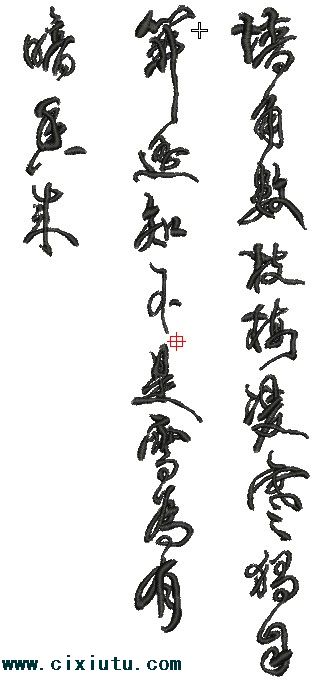 墙角数枝梅凌寒獨自
開遥知不是雪為有
暗香来
www.cixiutu.com